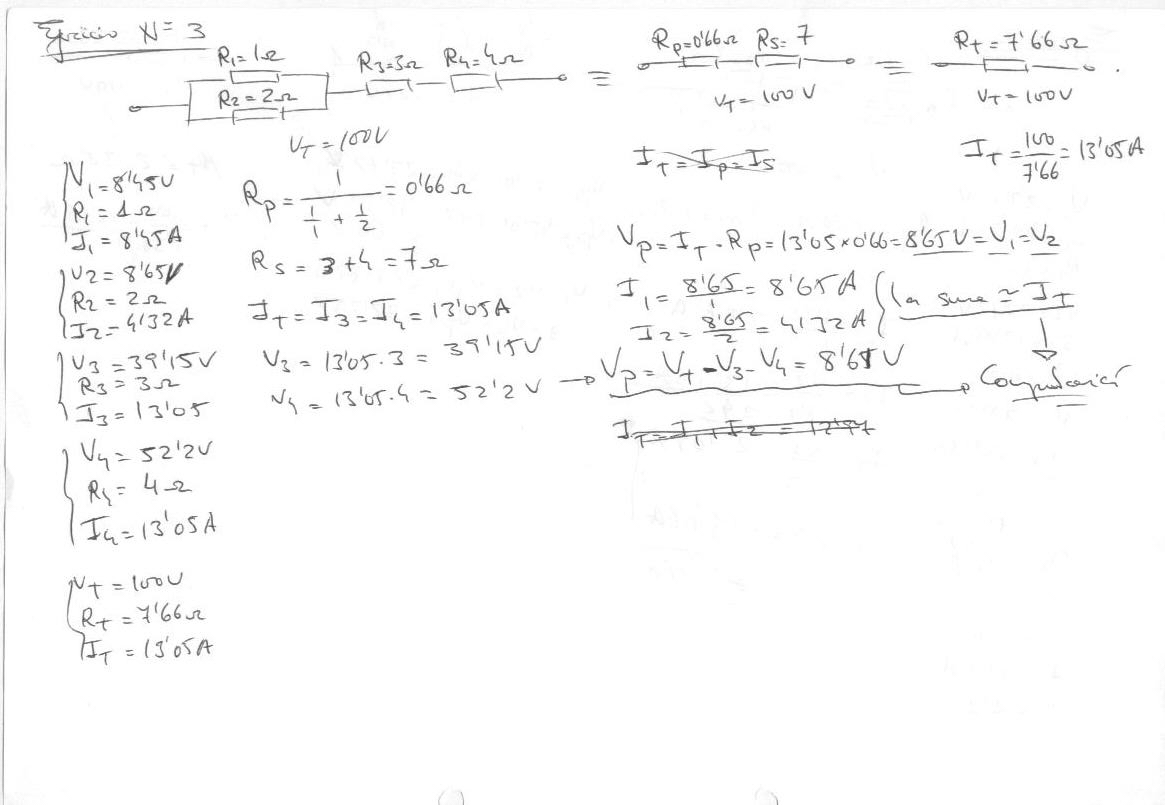 Ejercicio Nº 3
R₁=1Ω
R₂=2Ω
R₃=3Ω R₄=4Ω
V_T=100V
≡
Rp=0'66Ω Rs=7
V_T=100V
≡
R_t=7'66Ω
V_T=100V
I_T=Ip=Is
I_T=100/7'66=13'05A
V₁=8'45V
R₁=1Ω
I₁=8'45A
V₂=8'65V
R₂=2Ω
I₂=4'32A
V₃=39'15V
R₃=3Ω
I₃=13'05
V₄=52'2V
R₄=4Ω
I₄=13'05A
V_t=100V
R_t=7'66Ω
I_T=13'05A
Rp=1/(1/1+1/2)=0'66Ω
Rs=3+4=7Ω
I_T=I₃=I₄=13'05A
V₃=13'05.3=39'15V
V₄=13'05.4=52'2V
Vp=I_T.Rp=13'05×0'66=8'65V=V₁=V₂
I₁=8'65/1=8'65A
I₂=8'65/2=4'32A
La suma ≃ I_T
→ Vp=V_t-V₃-V₄=8'65V → Comprobación
I_T=I₁+I₂=12'97